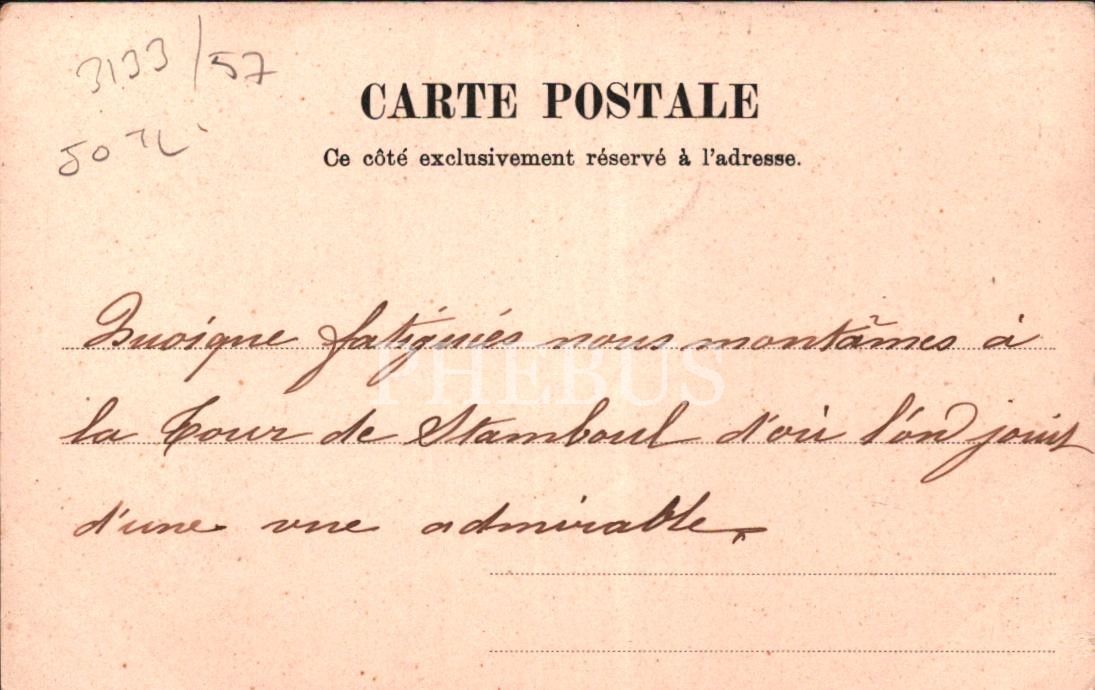 3133/57
50 TL
CARTE POSTALE
Ce côté exclusivement réservé à l'adresse.
Quoique fatiguiés nous montâmes à
la Tour de Stamboul d'où l'on jouit
d'une vue admirable.
PHEBUS